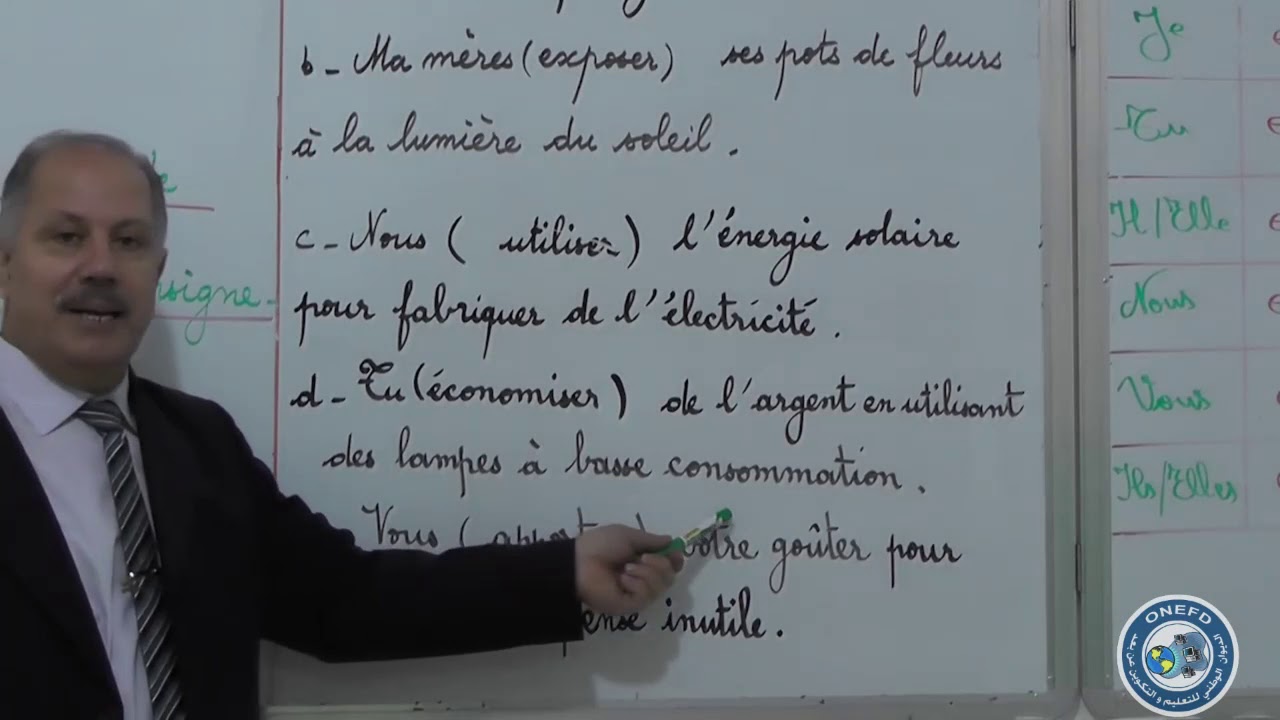 b - Ma mères (exposer) ses pots de fleurs
à la lumière du soleil.
c - Nous ( utiliser ) l'énergie solaire
pour fabriquer de l'électricité.
d - Tu (économiser ) de l'argent en utilisant
des lampes à basse consommation.
Vous ( votre goûter pour
inutile.
Je
Tu
Il/Elle
Nous
Vous
Ils/Elles
ONEFD
الديوان الوطني للتعليم و التكوين عن بعد